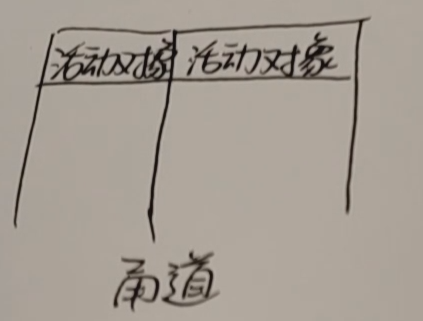 活动对象 活动对象
甬道